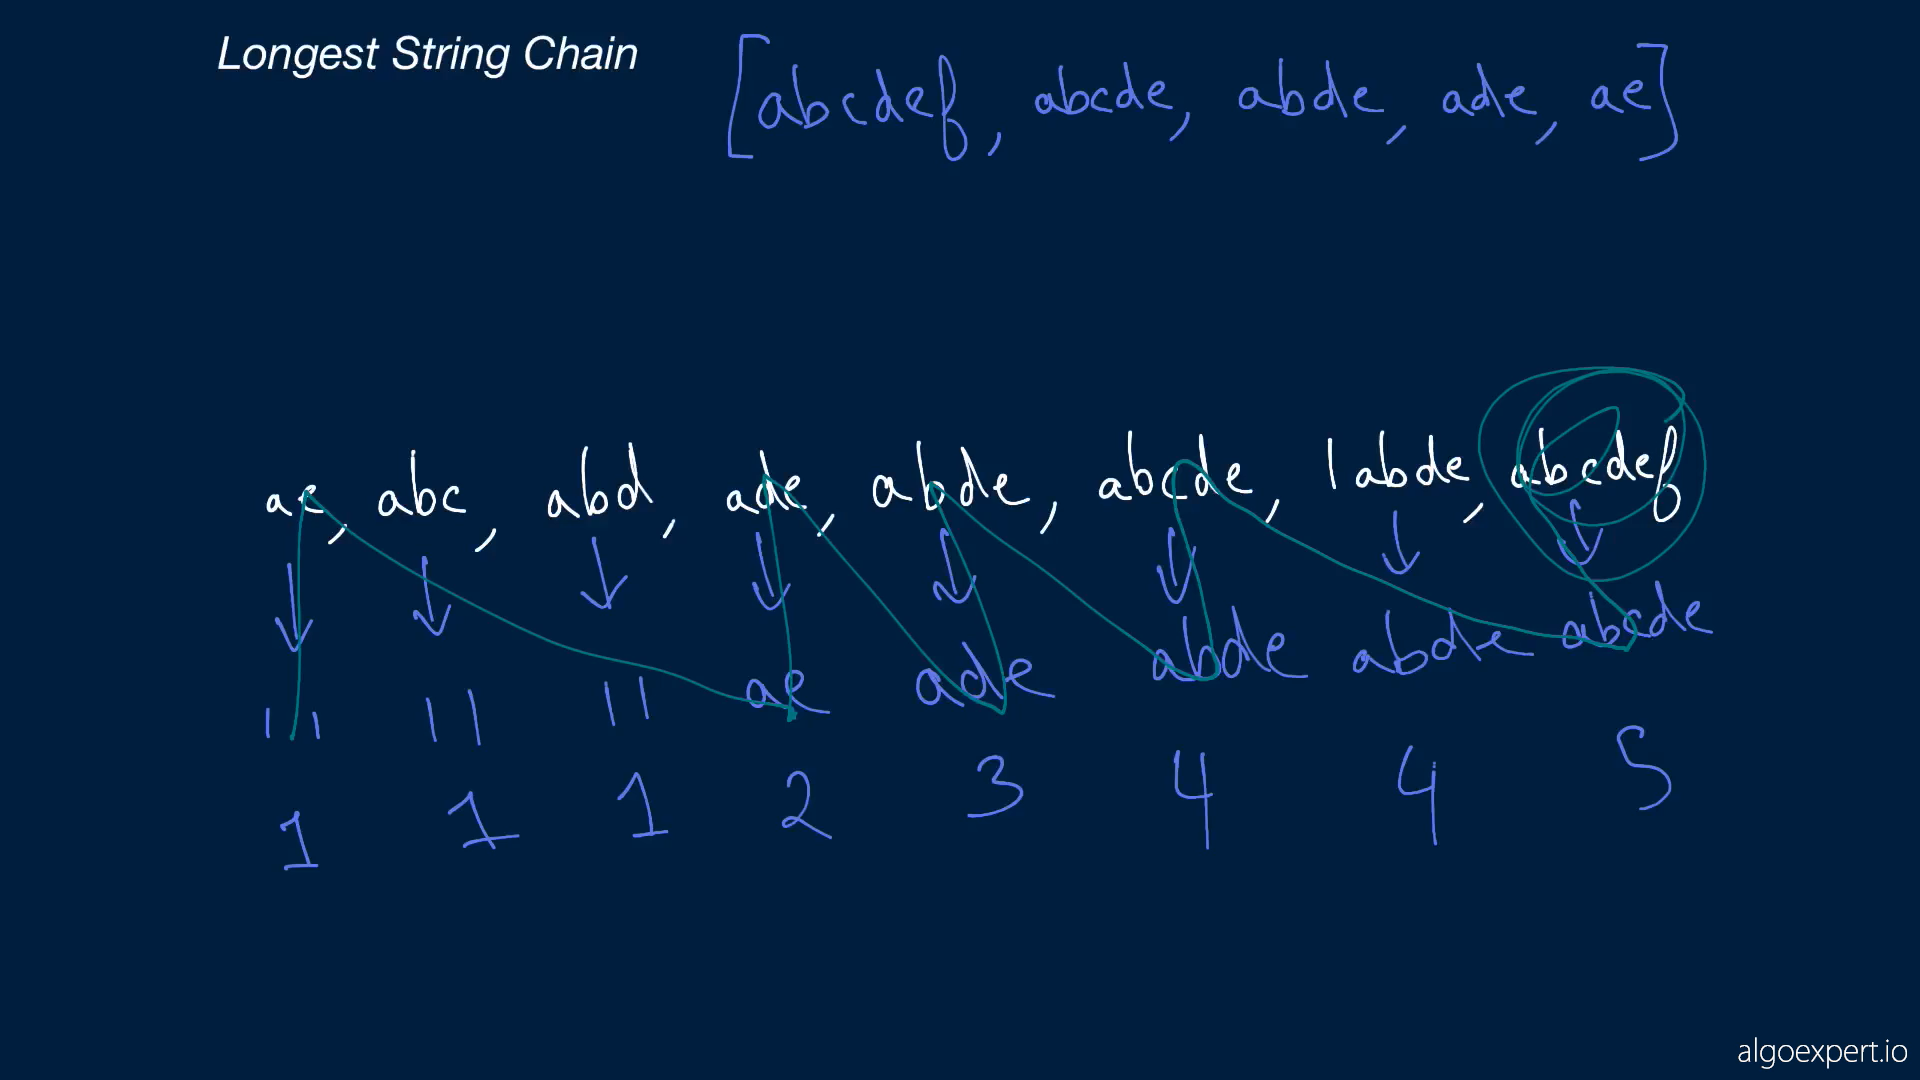 Longest String Chain
[abcdef, abcde, abde, ade, ae]
ae, abc, abd, ade, abde, abcde, 1abde, abcdef
" " " ae ade abde abde abcde
1 1 1 2 3 4 4 5
algoexpert.io